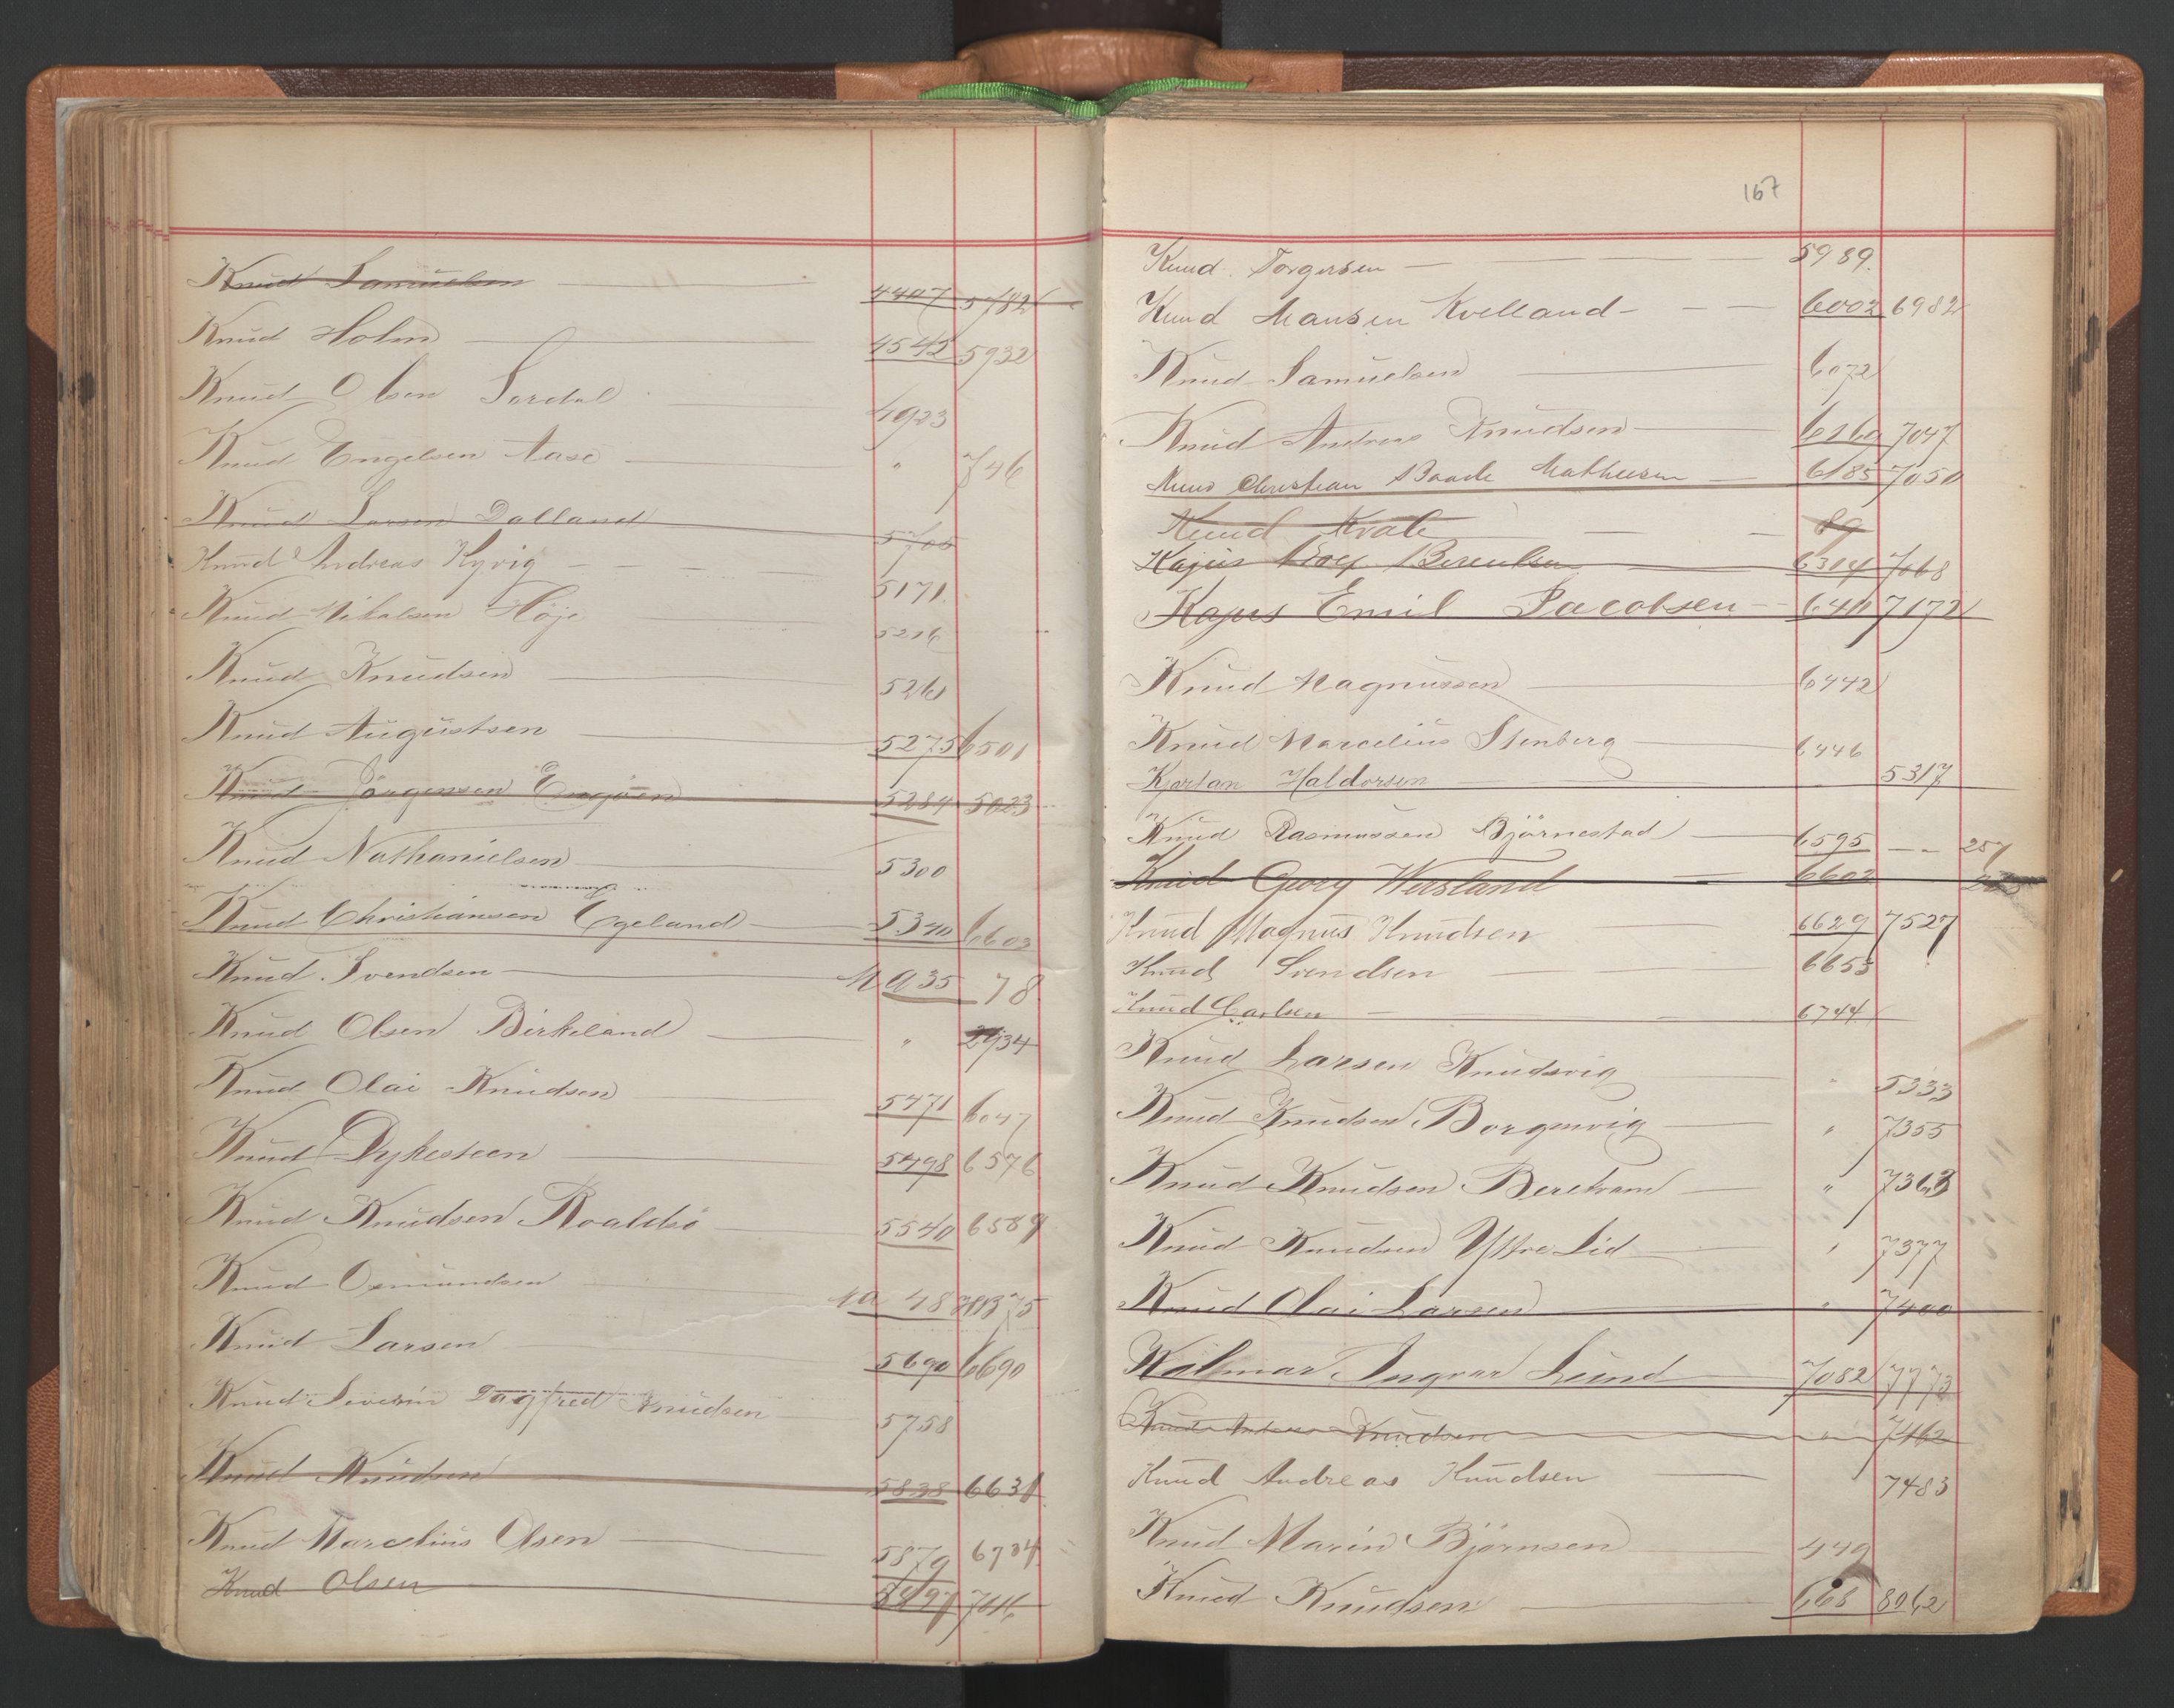 Knud Samuelsen 4407 5782
Knud Holm 4542 5932
Knud Olsen Sordal 4923
Knud Engelsen Aase " 746
Knud Larsen Dalland 5705
Knud Andreas Kyvig 5171
Knud Nikolsen Höje 5216
Knud Knudsen 5261
Knud Augustsen 5275 6501
Knud Jörgensen Engöen 5284 5023
Knud Nathanielsen 5300
Knud Christiansen Egeland 5340 6603
Knud Svendsen Na 35 78
Knud Olsen Birkeland " 2934
Knud Olai Knudsen 5471 6047
Knud Dykesteen 5498 6576
Knud Knudsen Roaldsö 5540 6589
Knud Osmundsen Na 48 75
Knud Larsen 5690 6690
Knud Severin Dagfred Knudsen 5758
Knud Knudsen 5838 6631
Knud Marcelius Olsen 5879 6734
Knud Olsen 5897 7016
167
Knud Torgersen 5989
Knud Hansen Kvelland 6002 6982
Knud Samuelsen 6072
Knud Andreas Knudsen 6160 7047
Knud Christian Baade Mathiesen 6185 7050
Knud Kvale 89
Kajus Berentsen 6304 7068
Kajus Emil Jacobsen 6411 7172
Knud Magnussen 6442
Knud Marcelius Stenberg 6446
Kjartan Haldorsen 5317
Knud Rasmussen Björnestad 6595 - - 257
Knud Georg Wersland 6602
Knud Magnus Knudsen 6629 7527
Knud Svendsen 6653
Knud Carlsen 6744
Knud Larsen Knudsvig " 5333
Knud Knudsen Borgenvig " 7355
Knud Knudsen " 7363
Knud Knudsen Ytre Lid " 7377
Knud Olai Larsen " 7400
Kolmar Ingvar Lund 7082 7773
Knud Andreas Knudsen " 7462
Knud Andreas Knudsen 7483
Knud Marin Björnsen 449
Knud Knudsen 668 8062